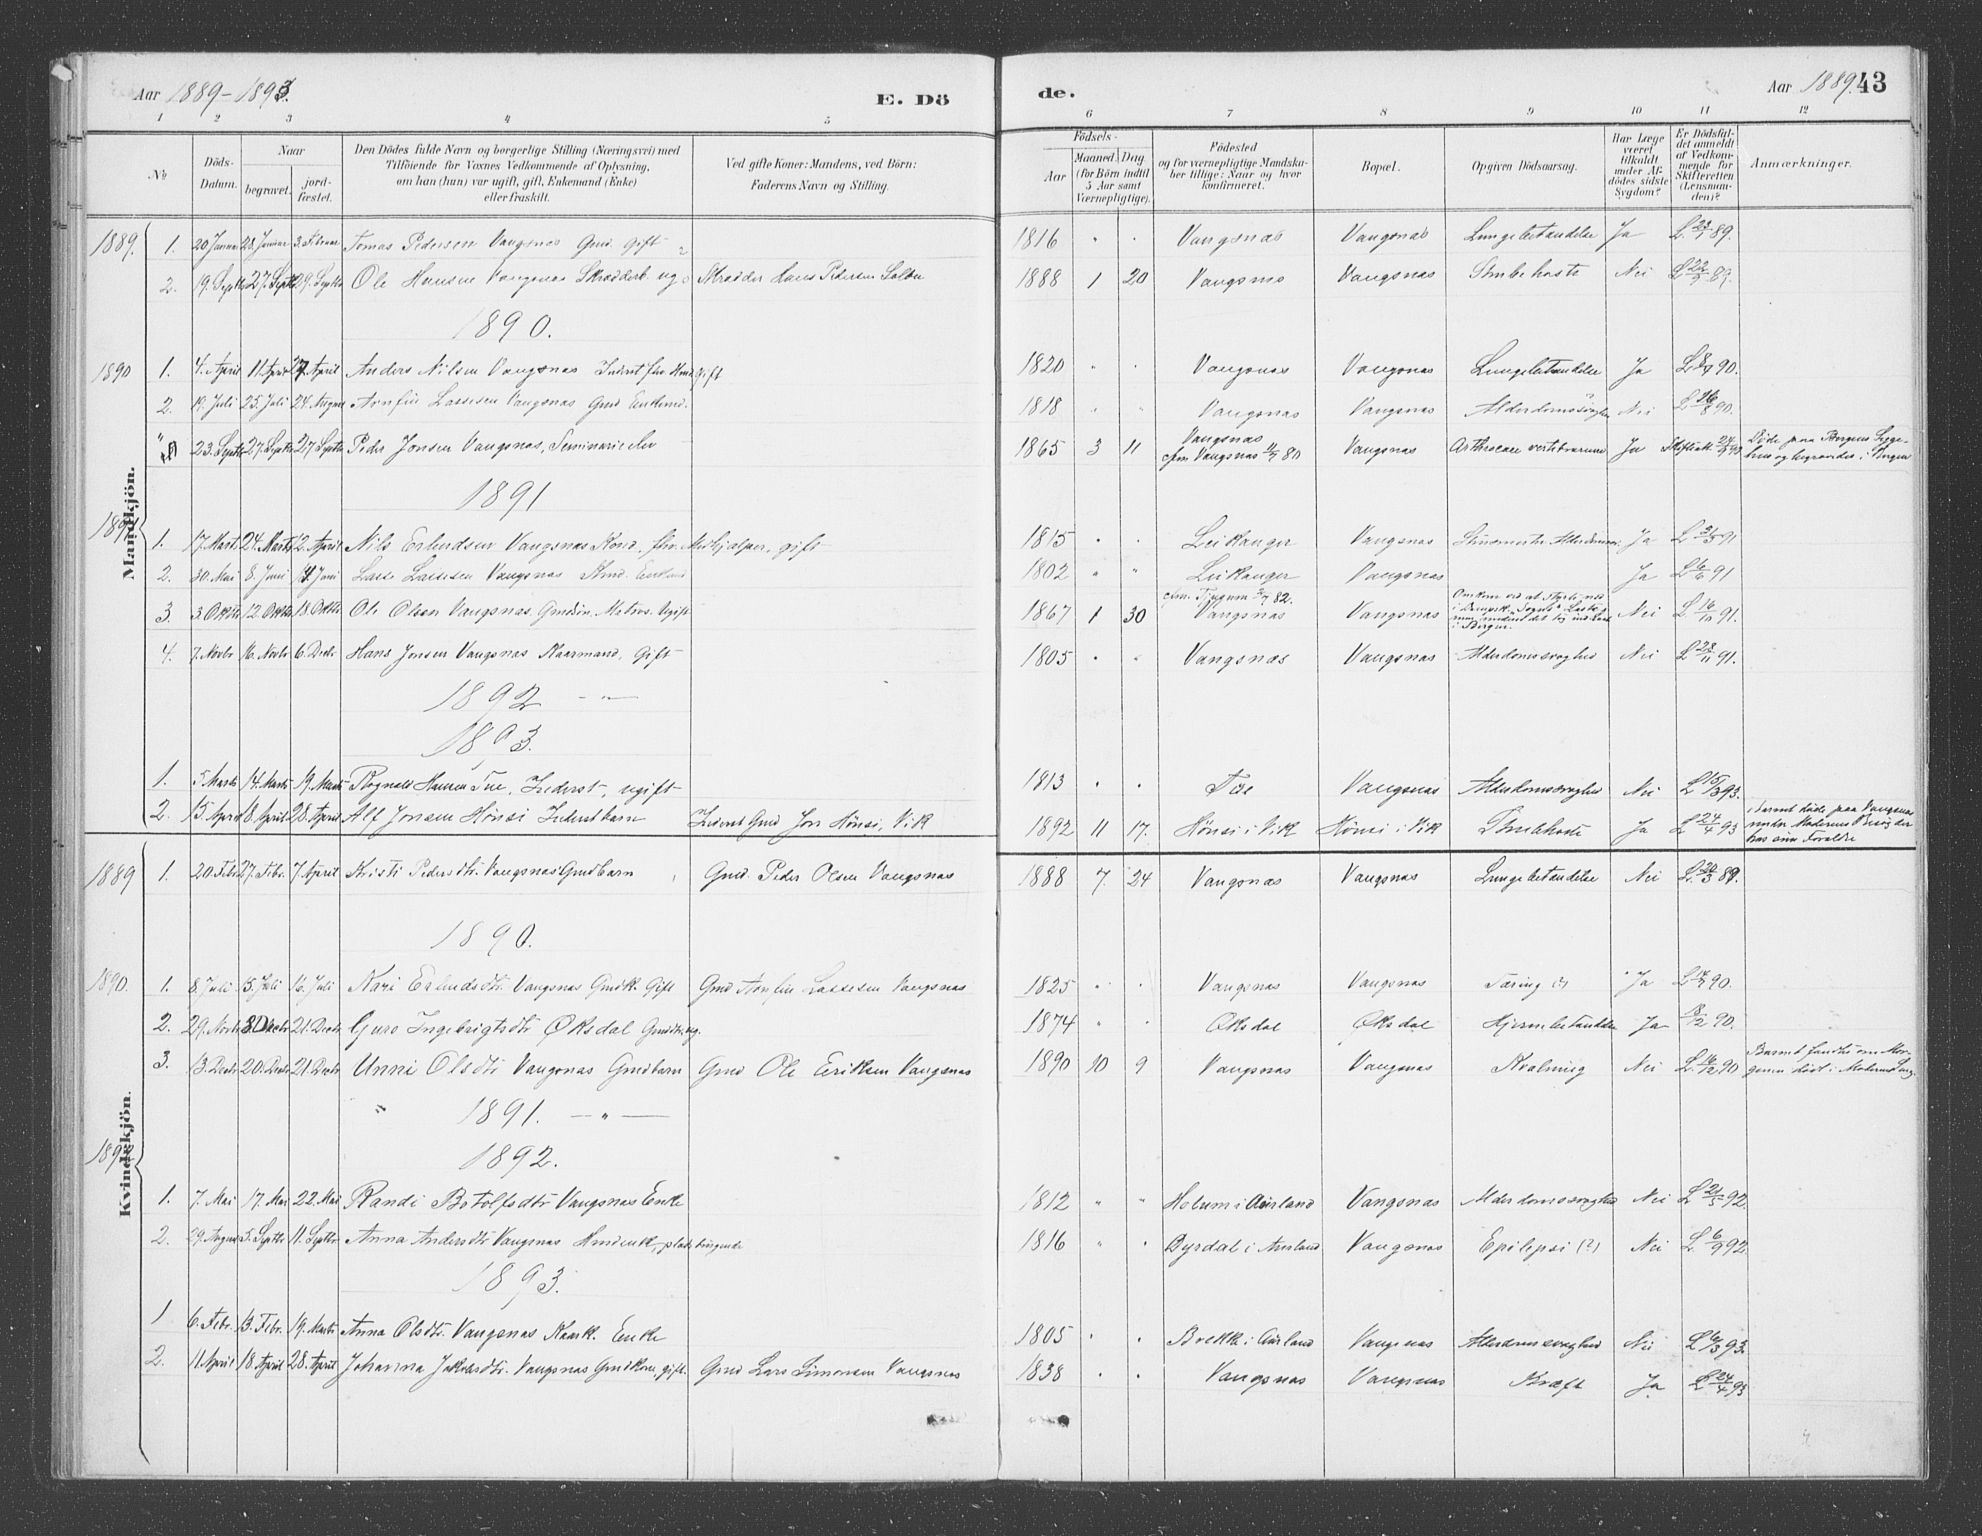 Aar 1889-1893. E. Dö
de. Aar 1889. 43
1 2 3 4 5 6 7 8 9 10 11 12
№ Döds-Datum. Naar begravet. jord-fæstet. Den Dödes fulde Navn og borgerlige Stilling (Næringsvei) med Tilföiende for Voxnes Vedkommende af Oplysning, om han (hun) var ugift, gift, Enkemand (Enke) eller fraskilt. Ved gifte Koner: Mandens, ved Börn: Faderens Navn og Stilling. Födsels- Aar Maaned. (for Börn indtil 5 Aar samt Værnepligtige). Dag Födested og for værnepligtige Mandskaber tillige: Naar og hvor konfirmeret. Bopæl. Opgiven Dödsaarsag. Har Læge været tilkaldt under Afdödes sidste Sygdom? Er Dödsfaldet anmeldt af Vedkommende for Skifteretten (Lensmanden)? Anmærkninger.
Mandkjön.
1889. 1. 20 Januar 28. Januar 3. Februar Tomas Pedersen Vangsnæs Gmd. Gift 1816 " " Vangsnæs Vangsnæs Lungebetændelse Ja L. 89.
2. 19. Septbr 27. Septbr 29. Septbr Ole Hansen Vangsnæs Skrædderb. ug. Skrædder Hans Pedersen 1888 1 20 Vangsnæs Vangsnæs Strubehoste Nei L 22/9 89.
1890.
1890 1. 4. April 11. April 27. April Anders Nilsen Vangsnæs Inderst fhv. Hmd. gift 1820 " " Vangsnæs Vangsnæs Lungebetændelse Ja L 90.
2. 19. Juli 25. Juli 24. August Arnfin Lassesen Vangsnæs Gmd Enkemd. 1818 " " Vangsnæs Vangsnæs Alderdomssvaghed Nei L 90.
23. Septbr 27. Septbr 27 Septbr Peder Jonsen Vangsnæs, Seminarieelev 1865 3 11 Vangsnæs cfm. Vangsnæs 80 Vangsnæs Arthrocace vertebrarum Ja Skifteret. 24/9 90 Döde paa Bergens Sygehus og begravedes i Bergen
1891
1891 1. 17. Marts 24. Marts 12. April Nils Erlendsen Vangsnæs Kaard. fhv. Medhjælper, gift 1815 " " Leikanger Vangsnæs Ja L 91
2. 30. Mai 8. Juni 14 Juni Lasse Lassesen Vangsnæs Enkemd 1802 " " Leikanger Vangsnæs Ja L 91
3. 3. Oktbr 12. Oktbr 18. Oktbr Ole Olsen Vangsnæs. Gmdsön. Matros. Ugift 1867 1 30 cfm. Tjugum 82. Vangsnæs Vangsnæs Omkom ved at i Bergen. Nei L 16/10 91.
4. 7. Novbr 16. Novbr 6. Decbr Hans Jonsen Vangsnæs Kaarmand, Gift 1805 " " Vangsnæs Vangsnæs Alderdomssvaghed Nei L 23/11 91.
1892 — " —
1893.
1. 5. Marts 14. Marts 19. Marts Rognald Hansen Tue, Inderst, ugift 1813 " " Tue Vangsnæs Alderdomssvaghed Nei L 15/3 93.
2. 15. April 18. April 28. April Alf Jonsen Hönsi Inderstbarn Inderst Gmd Jon Hönsi, Vik 1892 11 17. Hönsi i Vik Hönsi i Vik Strubehoste Ja L 24/4 93 Barnet döde paa Vangsnæs under Moderens Besög der hos sine Forældre
Kvindekjön.
1889 1. 20. Febr 27. Febr. 7. April Kristi Pedersdtr. Vangsnæs Gmdbarn Gmd. Peder Olsen Vangsnæs 1888 7. 24 Vangsnæs Vangsnæs Lungebetændelse Nei L. 89.
1890.
1890. 1. 8. Juli 15. Juli 16. Juli Kari Erlendsdtr. Vangsnæs Gmdk. Gift Gmd Arnfin Lassesen Vangsnæs 1825 " " Vangsnæs Vangsnæs Tæring (?) Ja L 14/7 90.
2. 29. Novbr 8. Decbr 21. Decbr Guro Ingebrigtsdtr Öksdal Gmdtr. ug. 1874 " " Öksdal Öksdal Hjernebetændelse Ja 8/12 90.
3. 13. Decbr 20. Decbr 21. Decbr Unni Olsdtr. Vangsnæs Gmdbarn Gmd Ole Eriksen Vangsnæs 1890 10 9 Vangsnæs Vangsnæs Kvalning Nei L. 16/12 90 Barnet fandtes om Morgenen dödt i Moderens Seng.
" 1891. — " —
1892.
1892 1. 7. Mai 17. Mai 22. Mai Randi Botolfsdtr Vangsnæs Enke 1812 " " Holum i Aurland Vangsnæs Alderdomssvaghed Nei L 21/5 92.
2. 29. August 5. Septbr 11. Septbr Anna Andersdtr Vangsnæs Hmdenke, pladsbrugende 1816 " " Dyrdal i Aurland Vangsnæs Epilepsi (?) Nei L. 6/9 92.
1893.
1 6. Febr. 13. Febr. 19. Marts Anna Olsdtr. Vangsnæs Kaark. Enke 1805 " " Brekke i Aurland Vangsnæs Alderdomssvaghed Nei L 93.
2. 11 April 18 April 28. April Johanna Jakobsdtr. Vangsnæs Gmdkone, gift. Gmd Lars Simonsen Vangsnæs 1838 " " Vangsnæs Vangsnæs Kræft Ja L 24/4 93